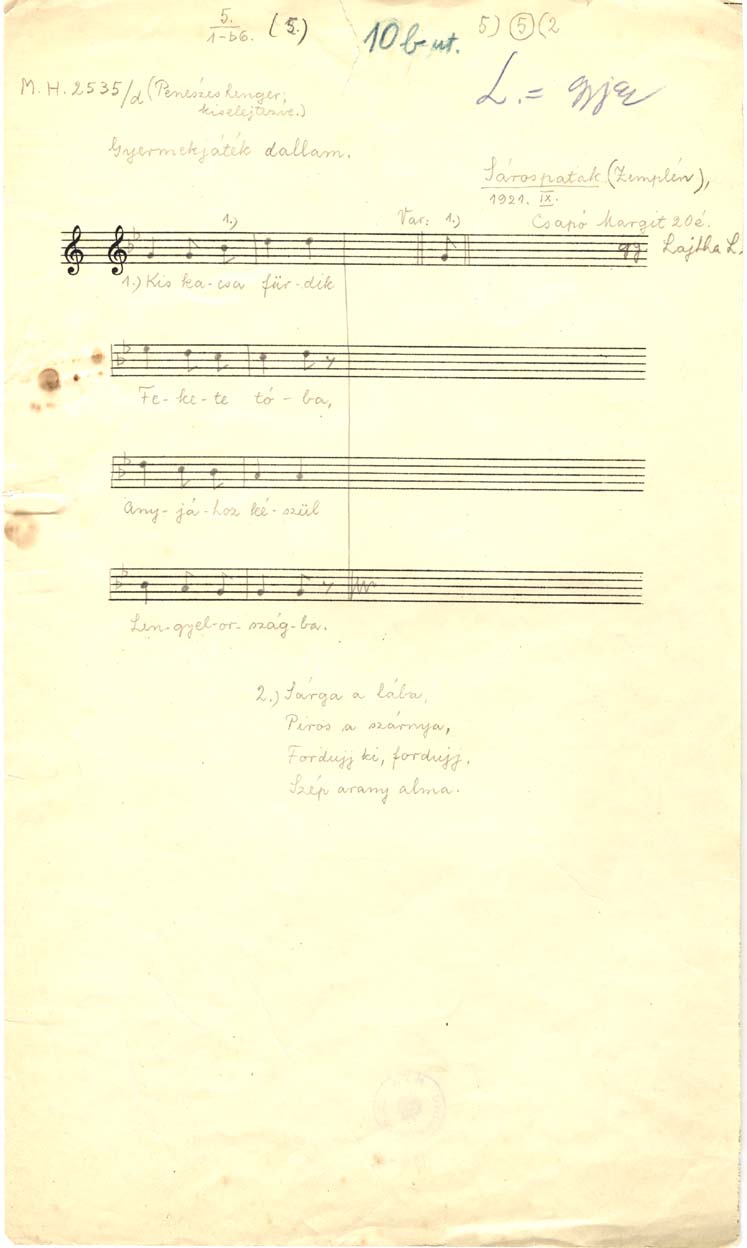 5.
1-b6. (5.)
10 b ut.
5) 5 (2
M. H. 2535/d (Penészes henger;
kiselejtezve.)
L. = gyer
Gyermekjáték dallam.
Sárospatak (Zemplén),
1921. IX.
Csapó Margit 20é.
gy Lajtha L.
1.)
Var: 1.)
1.) Kis ka-csa für-dik
Fe-ke-te tó-ba,
Any-já-hoz ké-szül
Len-gyel-or-szág-ba.
2.) Sárga a lába,
Piros a szárnya,
Fordujj ki, fordujj,
Szép arany alma.